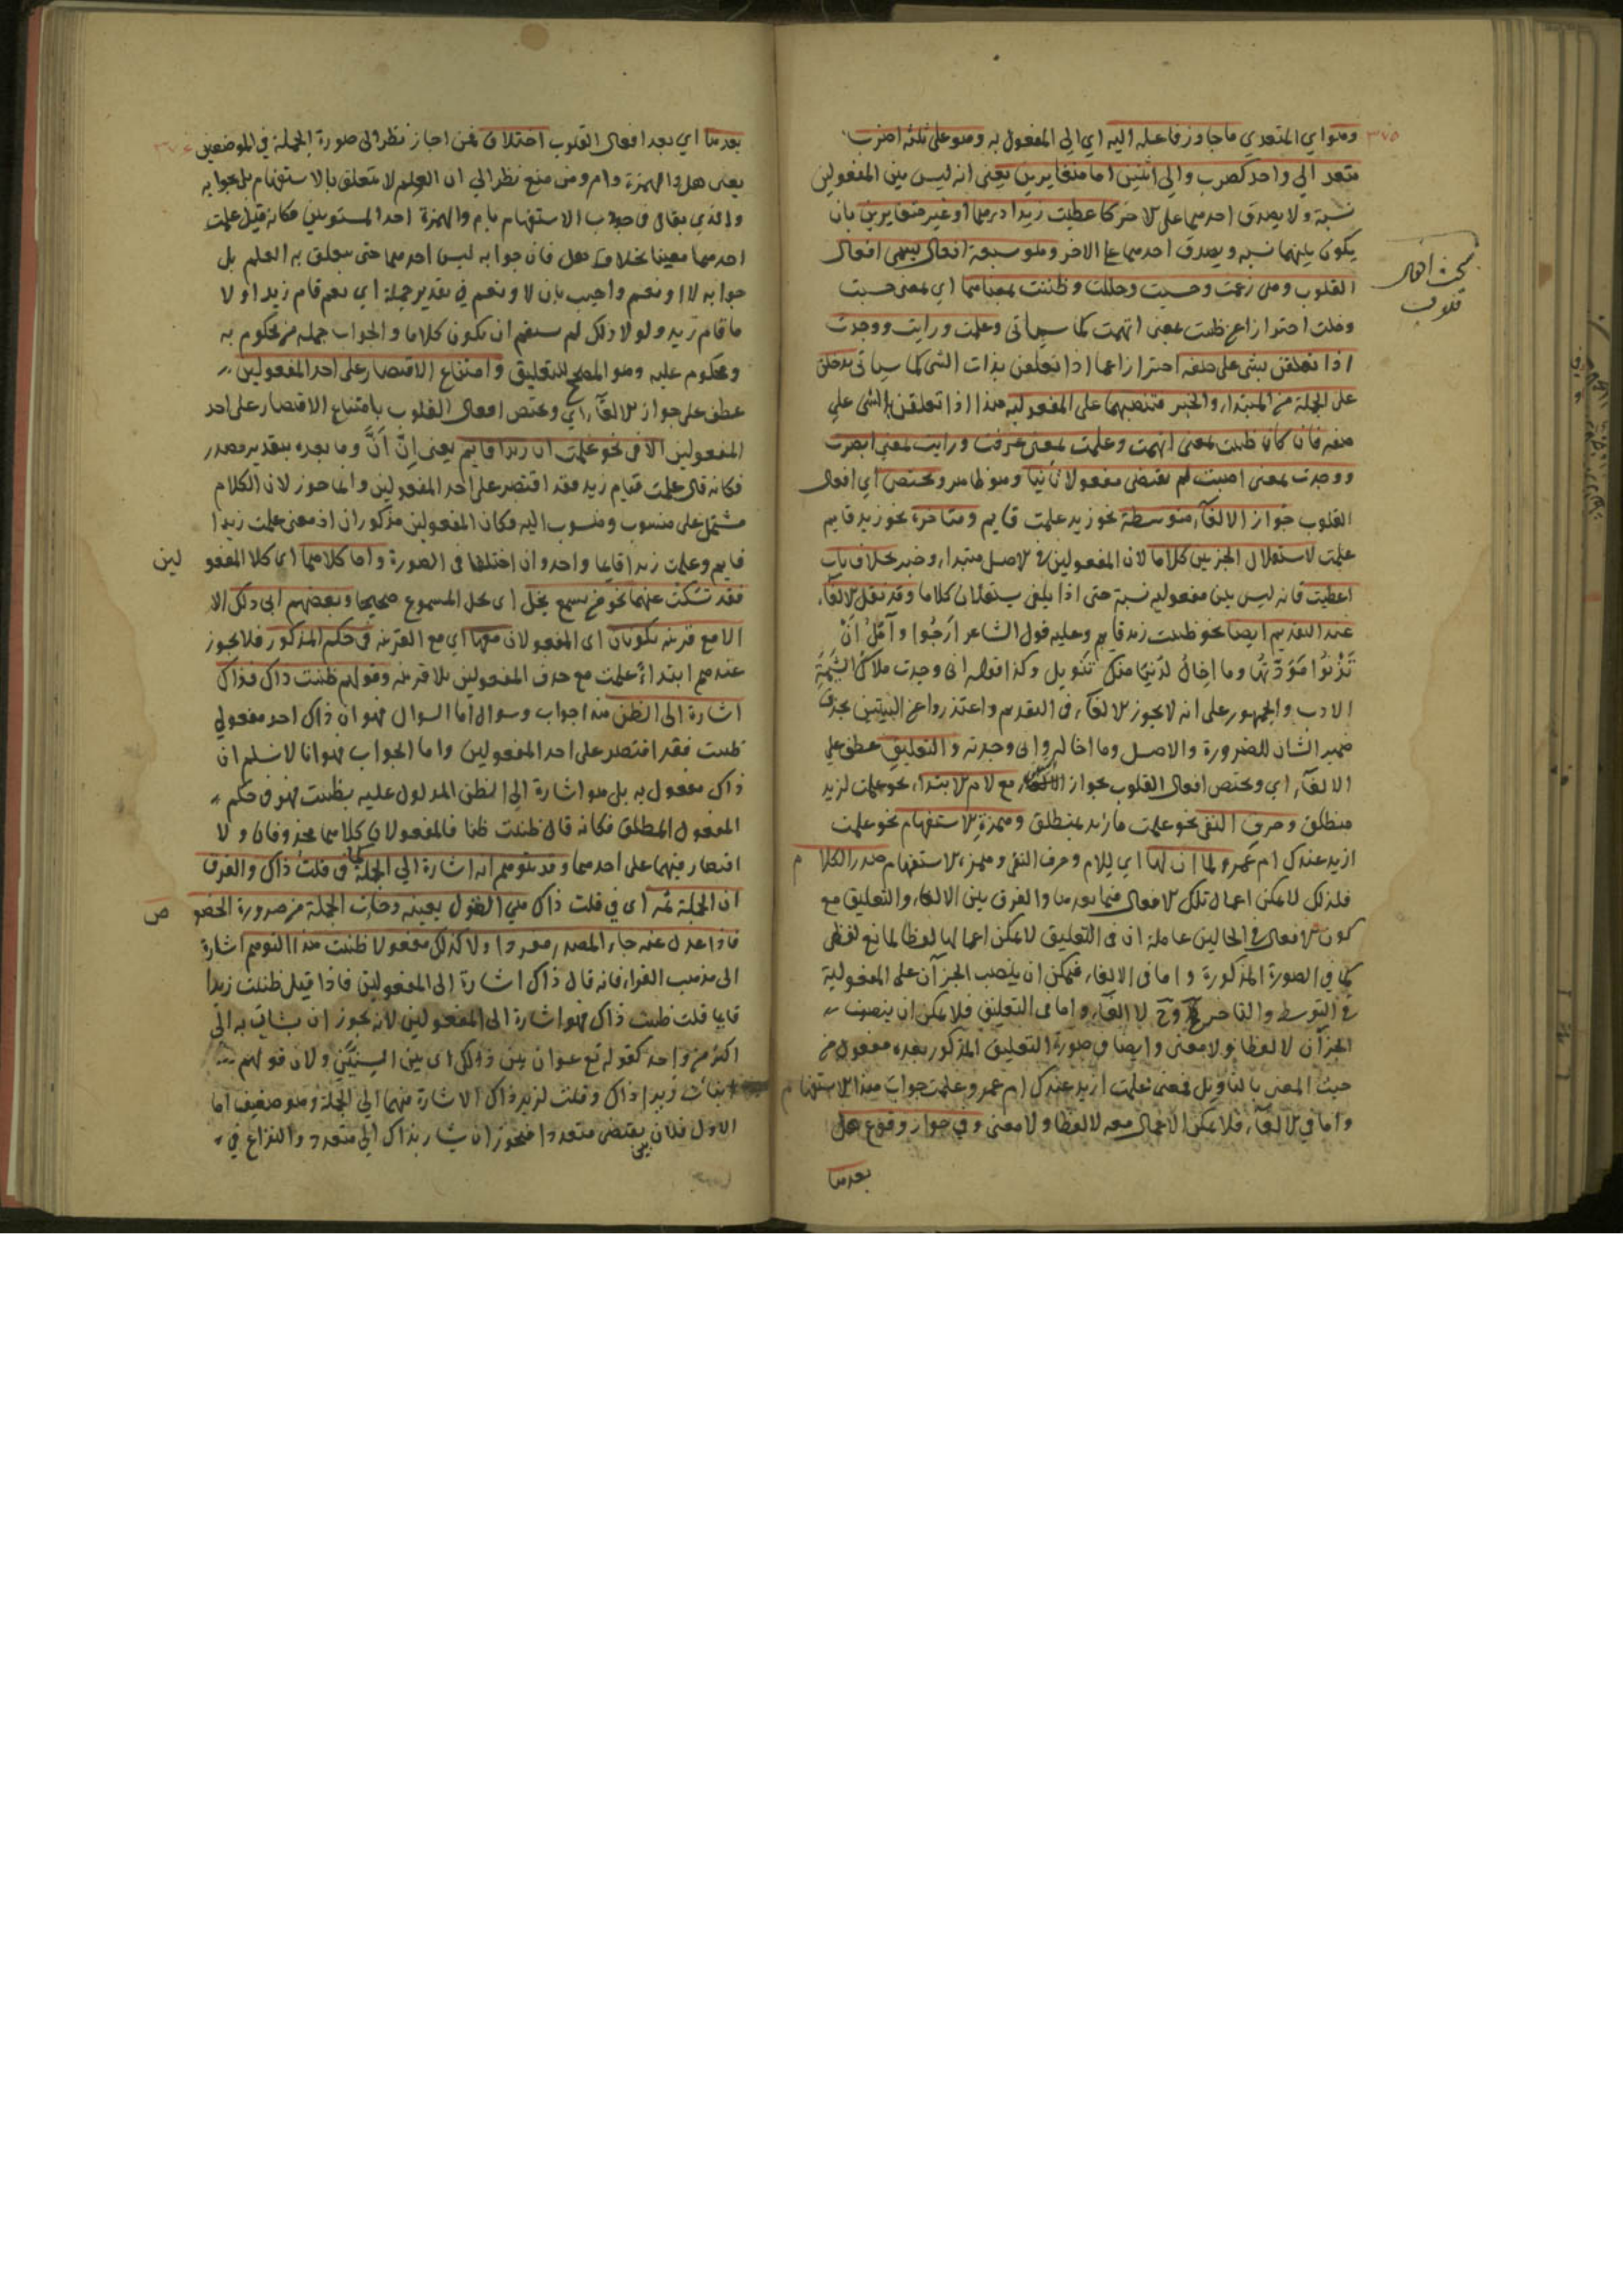 وهو اي المتعدي ما جاوز فاعله اليه اي الي المفعول به وهو على ثلثة اضرب
متعد الي واحد كضرب والي اثنين اما متغايرين يعني انه ليس بين المفعولين
نسبة ولا يصدق احدهما على الاخر كاعطيت زيدا درهما او غير متغايرين بان
يكون بينهما نسبة ويصدق احدهما على الاخر وهو سبعة افعال يسمى افعال
القلوب وهى زعمت وحسبت وخلت وظننت بمعناها اي بمعنى حسبت
وقلت احترازا عن ظننت بمعنى اتهمت كما سياتى وعلمت ورايت ووجدت
اذا تعلقن بشى على صفة احترازا عما اذا تعلقن بذات الشى كما سياتى يدخلن
على الجملة من المبتدا والخبر فتنصبهما على المفعولية هذا اذا تعلقن بالشى على
صفة فان كان ظننت بمعنى اتهمت وعلمت بمعنى عرفت ورايت بمعنى ابصرت
ووجدت بمعنى اصبت لم يقتضى مفعولا ثانيا وهو ظاهر ويختص اي افعال
القلوب جواز الالغاء متوسطة نحو زيد علمت قايم ومتاخرة نحو زيد قايم
علمت لاستقلال الجزيين كلاما لان المفعولين في الاصل مبتدا وخبر بخلاف باب
اعطيت فانه ليس بين مفعوليه نسبة حتى اذا يلغى يستقلان كلاما وقد نقل الالغاء
عند التقديم ايضا نحو ظننت زيد قايم وعليه قول الشاعر ارجوا وآمل ان
تدنوا مودتها وما اخال لدينا منك تنويل وكذا قوله انى وجدت ملاك الشيمة
الادب والجمهور على انه لا يجوز الالغاء في التقديم واعتذروا عن البيتين بحذف
ضمير الشان للضرورة والاصل وما اخاله وانى وجدته والتعليق عطف على
الالغاء اي ويختص افعال القلوب بجواز التعليق مع لام الابتداء نحو علمت لزيد
منطلق وحرف النفى نحو علمت ما زيد بمنطلق وهمزة الاستفهام نحو علمت
ازيد عندك ام عمرو لما ان لها اي للام وحرف النفى وهمزة الاستفهام صدر الكلام
فلذلك لا يمكن اعمال تلك الافعال فيما بعدها والفرق بين الالغاء والتعليق مع
كون الافعال في الحالين عاملة ان فى التعليق لا يمكن اعمالها لفظا لمانع لفظى
كما في الصورة المذكورة واما فى الالغاء فيمكن ان ينصب الجزآن على المفعولية
في التوسط والتاخر وح لا الغاء واما فى التعليق فلا يمكن ان ينصب
الجزآن لا لفظا ولا معنى وايضا في صورة التعليق المذكور بعده مفعول من
حيث المعنى بالتاويل فمعنى علمت ازيد عندك ام عمرو علمت جواب هذا الاستفهام
واما في الالغاء فلا يمكن الاعمال معه لا لفظا ولا معنى وفي جواز وقوع هل
بعدها
٣٧٥
مبحث افعال
قلوب
بعدها اي بعد افعال القلوب اختلاف فمن اجاز نظر الى صورة الجملة في الموضعين
يعنى هل والهمزة وام ومن منع نظر الي ان العلم لا يتعلق بالاستفهام بل بجوابه
والذي يقال في جواب الاستفهام بام والهمزة احد المستويين فكانه قيل علمت
احدهما معينا بخلاف هل فان جوابه ليس احدهما حتى يتعلق به العلم بل
جوابه لا او نعم واجيب بان لا ونعم في تقدير جملة اي نعم قام زيد او لا
ما قام زيد ولولا ذلك لم يستقم ان يكون كلاما والجواب جملة من محكوم به
ومحكوم عليه وهو المصحح للتعليق وامتناع الاقتصار على احد المفعولين
عطف على جواز الالغاء اي ويختص افعال القلوب بامتناع الاقتصار على احد
المفعولين الا في نحو علمت ان زيدا قايم يعنى ان أن وما بعده بتقدير مصدر
فكانه قال علمت قيام زيد فقد اقتصر على احد المفعولين وانما جوز لان الكلام
مشتمل على منسوب ومنسوب اليه فكان المفعولين مذكوران اذ معنى علمت زيدا
قايم وعلمت زيدا قايما واحد وان اختلفا فى الصورة واما كلاهما اى كلا المفعو
لين
فقد تسكت عنهما نحو من يسمع يخل اى يخل المسموع صحيحا وبعضهم ابى ذلك الا
الا مع قرينة يكونان اى المفعولان معها اي مع القرينة فى حكم المذكور فلا يجوز
عندهم ابتداء علمت مع حذف المفعولين بلا قرينة وقولهم ظننت ذاك فذاك
اشارة الى الظن هذا جواب وسوال اما السوال فهو ان ذاك احد مفعولي
ظننت فقد اقتصر على احد المفعولين واما الجواب فهو انا لا نسلم ان
ذاك مفعول به بل هو اشارة الى الظن المدلول عليه بظننت فهو فى حكم
المفعول المطلق فكانه قال ظننت ظنا فالمفعولان كلاهما محذوفان ولا
اقتصار فيهما على احدهما وقد يتوهم انه اشارة الي الجملة كما فى قلت ذاك والفرق
ان الجملة ثمه اى في قلت ذاك هي القول بعينه
ص
فاذا عدل عنه جاء المصدر مفردا ولا كذلك مفعولا ظننت هذا التوهم اشارة
الى مذهب الفراء فانه قال ذاك اشارة الى المفعولين فاذا قيل ظننت زيدا
قايما قلت ظننت ذاك فهو اشارة الى المفعولين لانه يجوز ان يشار به الى
اكثر من واحد كقوله تع عوان بين ذلك اى بين السنين ولان قولهم
زيدا ذاك وقلت لزيد ذاك الاشارة فيهما الي الجملة وهو ضعيف اما
الاول فلان بين يقتضى متعددا فيجوز ان يشار بذاك الي متعدد والنزاع في